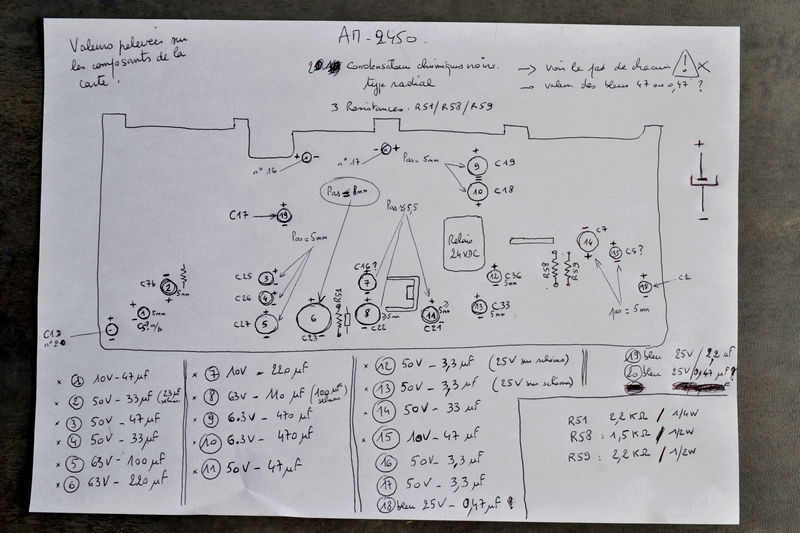 AM-2450.
Valeurs relevées sur
les composants de la
carte.
Condensateurs chimiques noirs.
type radial
→ voir le pas de chacun !
→ valeur des bleus 47 ou 0,47 ?
3 Résistances. R51/R58/R59
n° 16
n° 17
Pas = 5mm
9 C19
10 C18
Pas ≤ 8mm
Pas ≤ 5,5
C17 → 19
Pas = 5mm
Relais
24VDC
C7
14
15 C5?
C7b 2
5mm
C25 3
C26 4
C27 5
6
C23
R51
C16?
7
8
C22
5mm
11
C21
12 C36
5mm
13 C33
5mm
R58
R59
18 C1
Pas = 5mm
1 5mm
C10
n° 20
1 10V-47µF
2 50V-33µF
3 50V-47µF
4 50V-33µF
5 63V-100µF
6 63V-220µF
7 10V-220µF
8 63V-110µF (100µF schéma)
9 6.3V-470µF
10 6.3V-470µF
11 50V-47µF
12 50V-3,3µF (25V sur schéma)
13 50V-3,3µF (25V sur schéma)
14 50V-33µF
15 10V-47µF
16 50V-3,3µF
17 50V-3,3µF
18 bleu 25V-0,47µF !
19 bleu 25V/2,2µF
20 bleu 25V/0,47µF?
R51 2,2KΩ / 1/4W
R58 : 1,5KΩ / 1/2W
R59 : 2,2KΩ / 1/2W